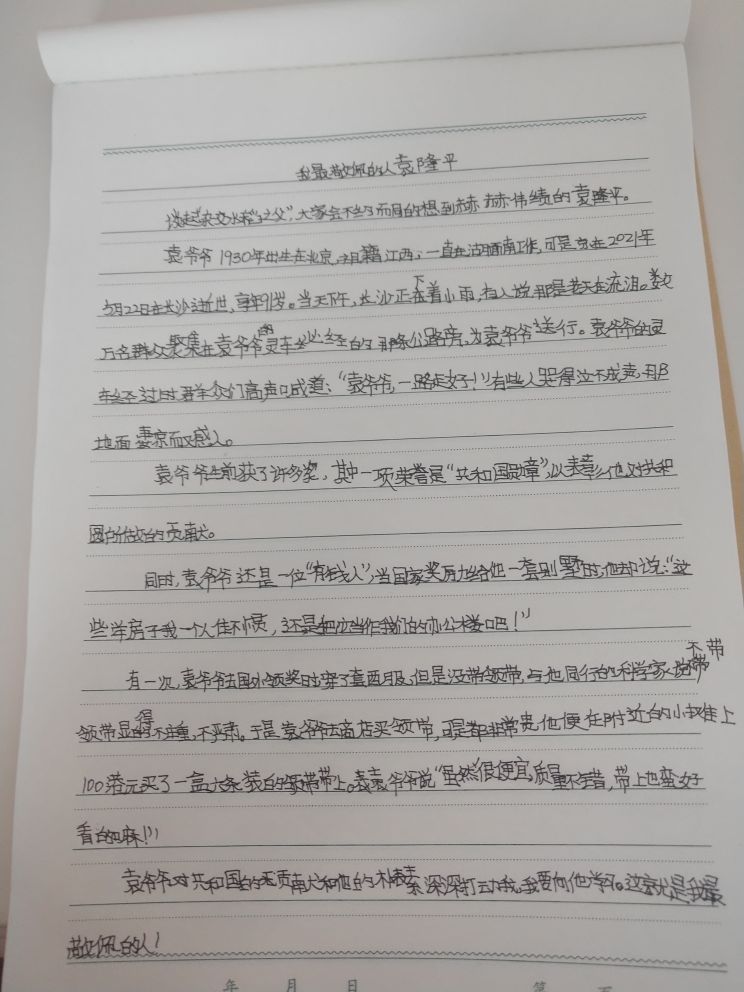 我最敬佩的人袁隆平
谈起“杂交水稻之父”，大家会不约而同的想到赫赫伟绩的袁隆平。
袁爷爷1930年出生在北京，祖籍江西，一直在湖南工作，可是京在2021年
5月22日在长沙逝世，享年91岁。当天下午，长沙正在下着小雨，有人说那是苍天在流泪。数
万名群众聚集在袁爷爷的灵车必经的那条公路旁，为袁爷爷送行。袁爷爷的灵
车经过时群众们高声喊道：“袁爷爷，一路走好！”有些人哭得泣不成声，那
地面凄凉而又感人。
袁爷爷生前获了许多奖，其中一项荣誉是“共和国勋章”，以表彰他对共和
国所做的贡献。
同时，袁爷爷还是一位“有钱人”，当国家奖励给他一套别墅时，他却说：“这
些洋房子我一个人住不惯，还是把它当作我们的办公楼吧！”
有一次，袁爷爷去国外领奖时穿了套西服，但是没带领带，与他同行的科学家说不带
领带显得不庄重，不严肃。于是袁爷爷去商店买领带，可是都非常贵，他便在附近的小摊上
100港元买了一盒六条装的领带带上。袁爷爷说“虽然很便宜，质量不错，带上也蛮好
看的嘛！”
袁爷爷对共和国的无贡献和他的朴素深深打动我，我要向他学习。这就是我最
敬佩的人！
年 月 日 第 页